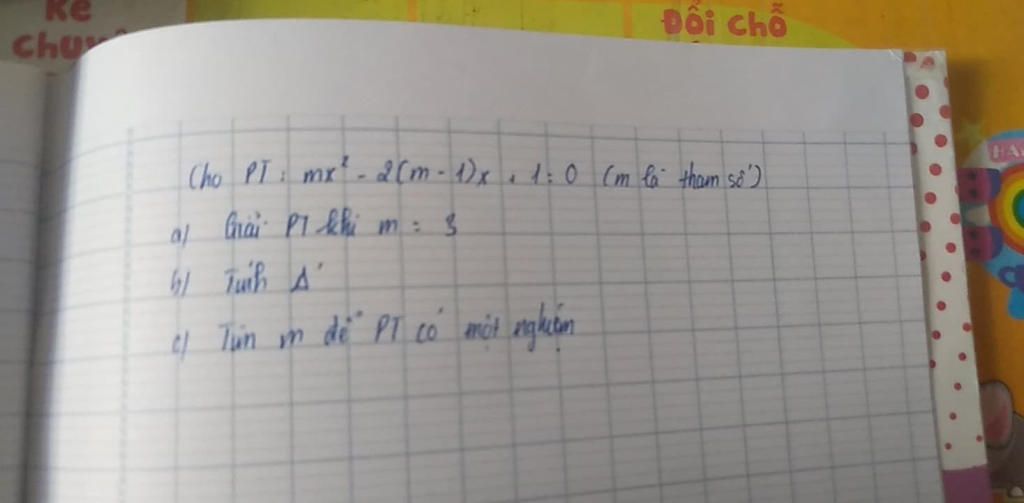 Kể
chuyệ
ĐỔI CHỖ
Cho PT: mx² - 2(m - 1)x + 1 = 0 (m là tham số)
a) Giải PT khi m = 3
b) Tính Δ'
c) Tìm m để PT có một nghiệm